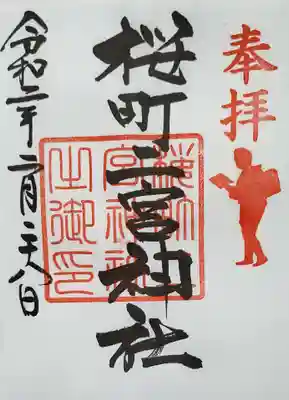 奉拝
桜町二宮神社
櫻町二
宮神社
之御印
令和二年二月二八日